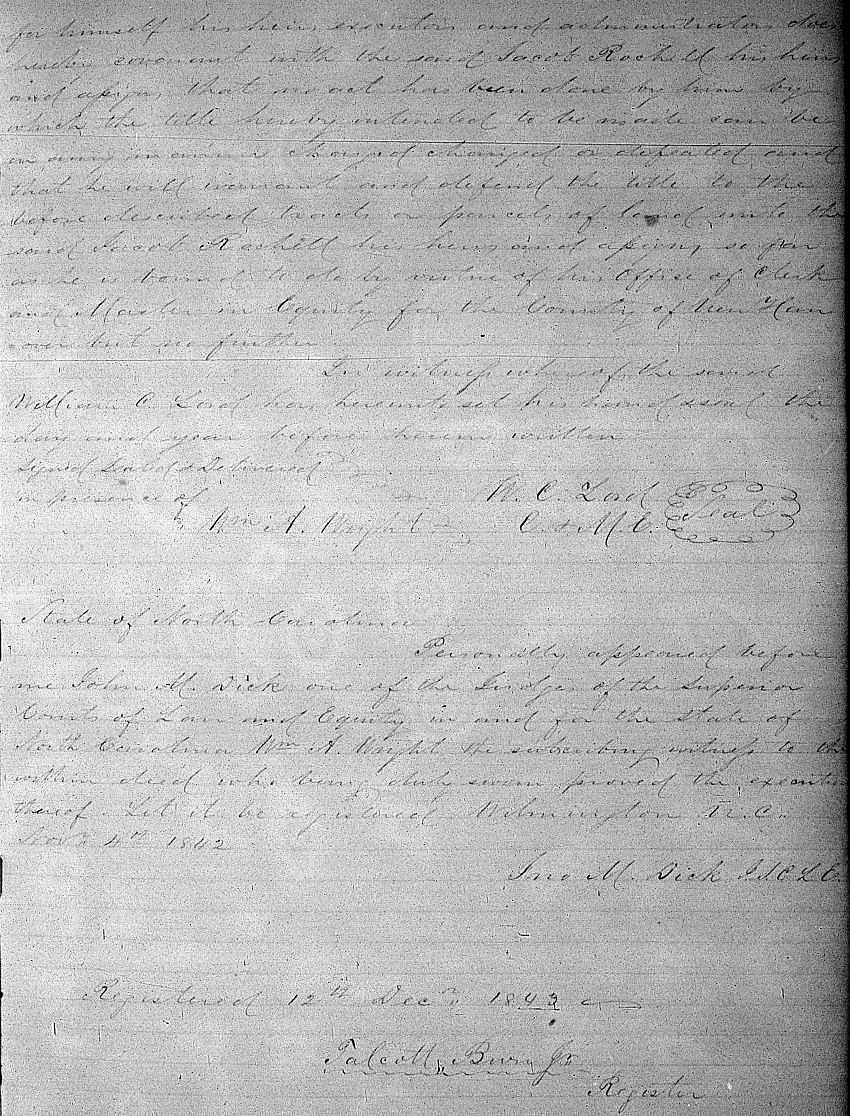 for himself his heirs executors and administrators does
hereby covenant with the said Jacob Rochell his heirs
and assigns, that no act has been done by him by
which the title hereby intended to be made can be
in any manner charged changed or defeated and
that he will warrant and defend the title to the
before described tracts or parcels of land unto the
said Jacob Rochell his heirs and assigns so far
as he is bound to do by virtue of his Office of Clerk
and Master in Equity for the County of New Han
over but no further
In witness whereof the said
William C. Lord has hereunto set his hand & seal the
day and year before herein written
Signed Sealed & Delivered
in presence of
W. C. Lord Seal
Wm A. Wright C. & M. E.
State of North Carolina
Personally appeared before
me John M. Dick one of the Judges of the Superior
Courts of Law and Equity in and for the State of
North Carolina Wm A. Wright the subscribing witness to the
within deed who being duly sworn proved the execution
thereof. Let it be registered Wilmington N.C.
Novr 4th 1842
Jno M. Dick J.S.C.L.E.
Registered 12th Decr 1843
Talcott Burr Jr
Register